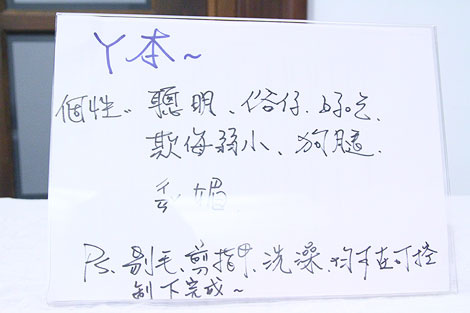 ㄚ本~
個性:聰明、俗仔、好吃、
欺侮弱小、狗腿、
媚
Ps、剔毛、剪指甲、洗澡、均在可控
制下完成~